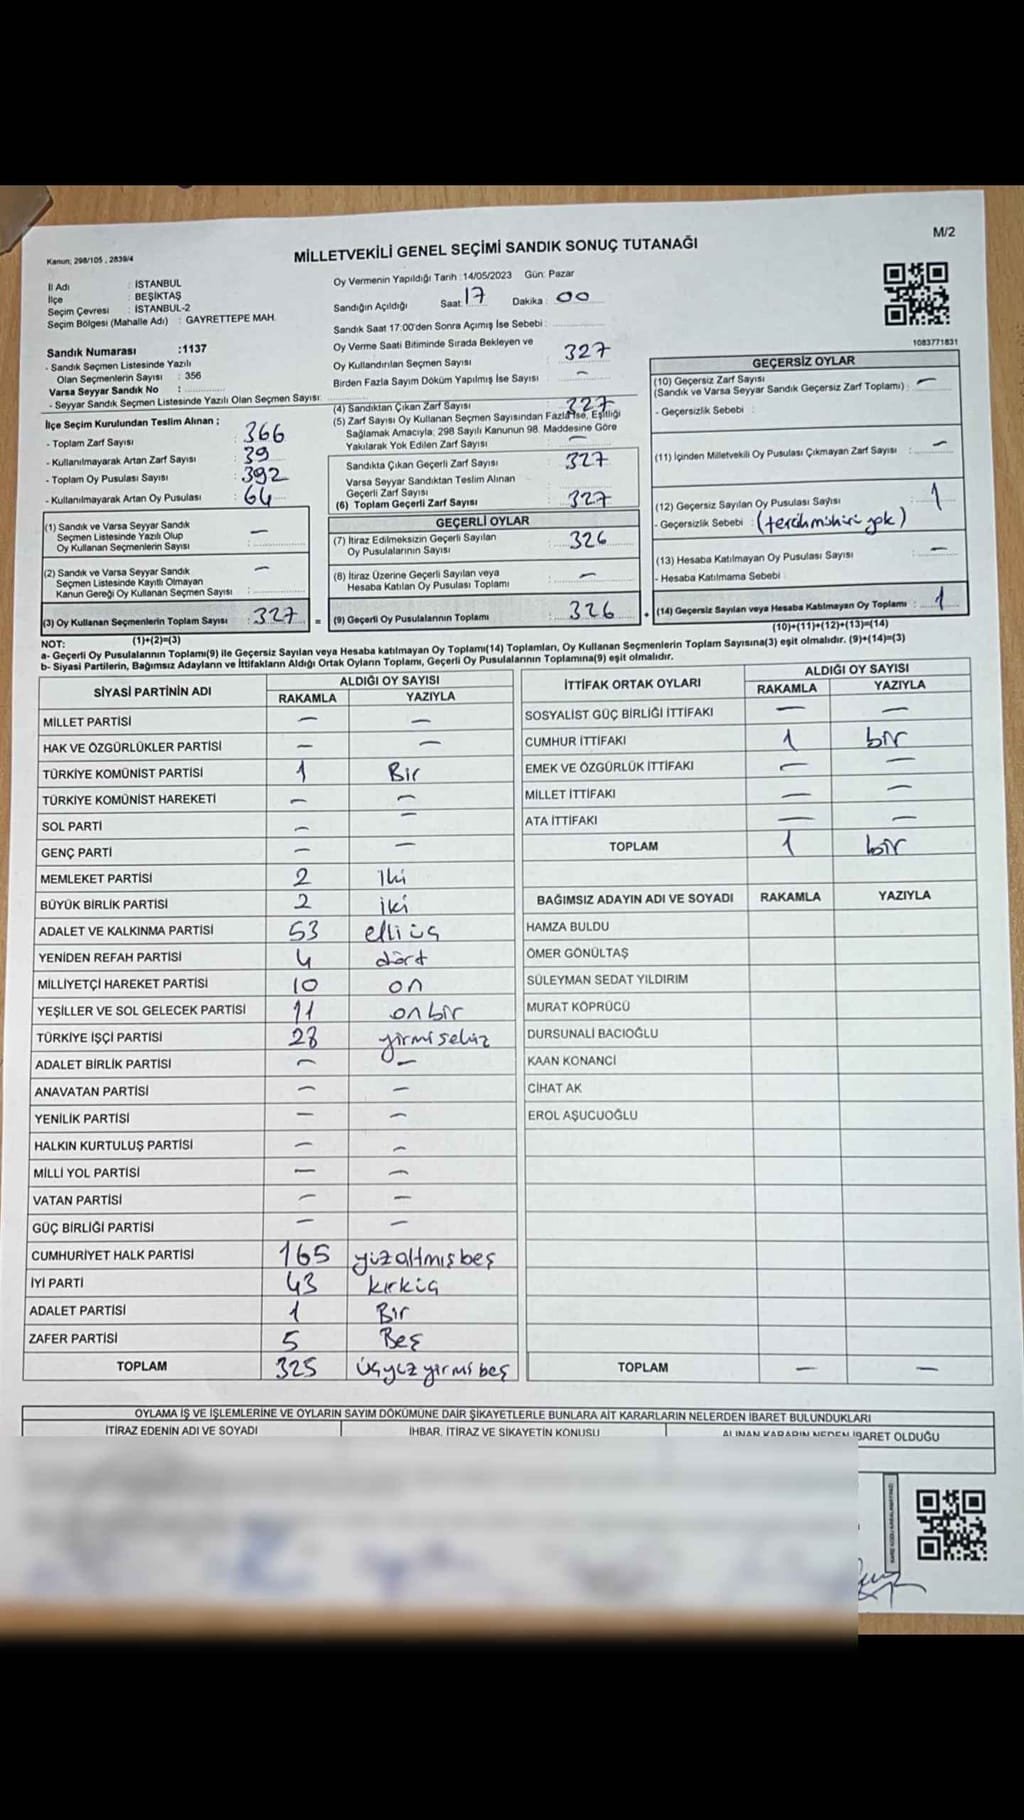 M/2
Kanun; 298/105 , 2839/4
MİLLETVEKİLİ GENEL SEÇİMİ SANDIK SONUÇ TUTANAĞI
İl Adı : İSTANBUL
İlçe : BEŞİKTAŞ
Seçim Çevresi : İSTANBUL-2
Seçim Bölgesi (Mahalle Adı) : GAYRETTEPE MAH.
Sandık Numarası :1137
- Sandık Seçmen Listesinde Yazılı
Olan Seçmenlerin Sayısı : 356
Varsa Seyyar Sandık No :
- Seyyar Sandık Seçmen Listesinde Yazılı Olan Seçmen Sayısı:
İlçe Seçim Kurulundan Teslim Alınan ;
- Toplam Zarf Sayısı : 366
- Kullanılmayarak Artan Zarf Sayısı : 39
- Toplam Oy Pusulası Sayısı : 392
- Kullanılmayarak Artan Oy Pusulası : 64
(1) Sandık ve Varsa Seyyar Sandık
Seçmen Listesinde Yazılı Olup
Oy Kullanan Seçmenlerin Sayısı : —
(2) Sandık ve Varsa Seyyar Sandık
Seçmen Listesinde Kayıtlı Olmayan
Kanun Gereği Oy Kullanan Seçmen Sayısı : —
(3) Oy Kullanan Seçmenlerin Toplam Sayısı : 327
(1)+(2)=(3)
Oy Vermenin Yapıldığı Tarih :14/05/2023 Gün: Pazar
Sandığın Açıldığı Saat: 17 Dakika : 00
Sandık Saat 17:00'den Sonra Açımış İse Sebebi :
Oy Verme Saati Bitiminde Sırada Bekleyen ve
Oy Kullandırılan Seçmen Sayısı : 327
Birden Fazla Sayım Döküm Yapılmış İse Sayısı : —
(4) Sandıktan Çıkan Zarf Sayısı : 327
(5) Zarf Sayısı Oy Kullanan Seçmen Sayısından Fazla İse, Eşitliği
Sağlamak Amacıyla; 298 Sayılı Kanunun 98. Maddesine Göre
Yakılarak Yok Edilen Zarf Sayısı : —
Sandıkta Çıkan Geçerli Zarf Sayısı : 327
Varsa Seyyar Sandıktan Teslim Alınan
Geçerli Zarf Sayısı
(6) Toplam Geçerli Zarf Sayısı : 327
GEÇERLİ OYLAR
(7) İtiraz Edilmeksizin Geçerli Sayılan
Oy Pusulalarının Sayısı : 326
(8) İtiraz Üzerine Geçerli Sayılan veya
Hesaba Katılan Oy Pusulası Toplamı : —
= (9) Geçerli Oy Pusulalarının Toplamı : 326
1083771831
GEÇERSİZ OYLAR
(10) Geçersiz Zarf Sayısı
(Sandık ve Varsa Seyyar Sandık Geçersiz Zarf Toplamı) : —
- Geçersizlik Sebebi :
(11) İçinden Milletvekili Oy Pusulası Çıkmayan Zarf Sayısı : —
(12) Geçersiz Sayılan Oy Pusulası Sayısı : 1
- Geçersizlik Sebebi : (tercih mührü yok)
(13) Hesaba Katılmayan Oy Pusulası Sayısı : —
- Hesaba Katılmama Sebebi :
+ (14) Geçersiz Sayılan veya Hesaba Katılmayan Oy Toplamı : 1
(10)+(11)+(12)+(13)=(14)
NOT:
a- Geçerli Oy Pusulalarının Toplamı(9) ile Geçersiz Sayılan veya Hesaba katılmayan Oy Toplamı(14) Toplamları, Oy Kullanan Seçmenlerin Toplam Sayısına(3) eşit olmalıdır. (9)+(14)=(3)
b- Siyasi Partilerin, Bağımsız Adayların ve İttifakların Aldığı Ortak Oyların Toplamı, Geçerli Oy Pusulalarının Toplamına(9) eşit olmalıdır.
SİYASİ PARTİNİN ADI ALDIĞI OY SAYISI
RAKAMLA YAZIYLA
MİLLET PARTİSİ — —
HAK VE ÖZGÜRLÜKLER PARTİSİ — —
TÜRKİYE KOMÜNİST PARTİSİ 1 Bir
TÜRKİYE KOMÜNİST HAREKETİ — —
SOL PARTİ — —
GENÇ PARTİ — —
MEMLEKET PARTİSİ 2 İki
BÜYÜK BİRLİK PARTİSİ 2 iki
ADALET VE KALKINMA PARTİSİ 53 elli üç
YENİDEN REFAH PARTİSİ 4 dört
MİLLİYETÇİ HAREKET PARTİSİ 10 on
YEŞİLLER VE SOL GELECEK PARTİSİ 11 onbir
TÜRKİYE İŞÇİ PARTİSİ 28 yirmisekiz
ADALET BİRLİK PARTİSİ — —
ANAVATAN PARTİSİ — —
YENİLİK PARTİSİ — —
HALKIN KURTULUŞ PARTİSİ — —
MİLLİ YOL PARTİSİ — —
VATAN PARTİSİ — —
GÜÇ BİRLİĞİ PARTİSİ — —
CUMHURİYET HALK PARTİSİ 165 yüzaltmışbeş
İYİ PARTİ 43 kırküç
ADALET PARTİSİ 1 Bir
ZAFER PARTİSİ 5 Beş
TOPLAM 325 üçyüzyirmibeş
İTTİFAK ORTAK OYLARI ALDIĞI OY SAYISI
RAKAMLA YAZIYLA
SOSYALİST GÜÇ BİRLİĞİ İTTİFAKI — —
CUMHUR İTTİFAKI 1 bir
EMEK VE ÖZGÜRLÜK İTTİFAKI — —
MİLLET İTTİFAKI — —
ATA İTTİFAKI — —
TOPLAM 1 bir
BAĞIMSIZ ADAYIN ADI VE SOYADI RAKAMLA YAZIYLA
HAMZA BULDU
ÖMER GÖNÜLTAŞ
SÜLEYMAN SEDAT YILDIRIM
MURAT KÖPRÜCÜ
DURSUNALİ BACIOĞLU
KAAN KONANCİ
CİHAT AK
EROL AŞUCUOĞLU
TOPLAM — —
OYLAMA İŞ VE İŞLEMLERİNE VE OYLARIN SAYIM DÖKÜMÜNE DAİR ŞİKAYETLERLE BUNLARA AİT KARARLARIN NELERDEN İBARET BULUNDUKLARI
İTİRAZ EDENİN ADI VE SOYADI İHBAR, İTİRAZ VE ŞİKAYETİN KONUSU ALINAN KARARIN NEDEN İBARET OLDUĞU